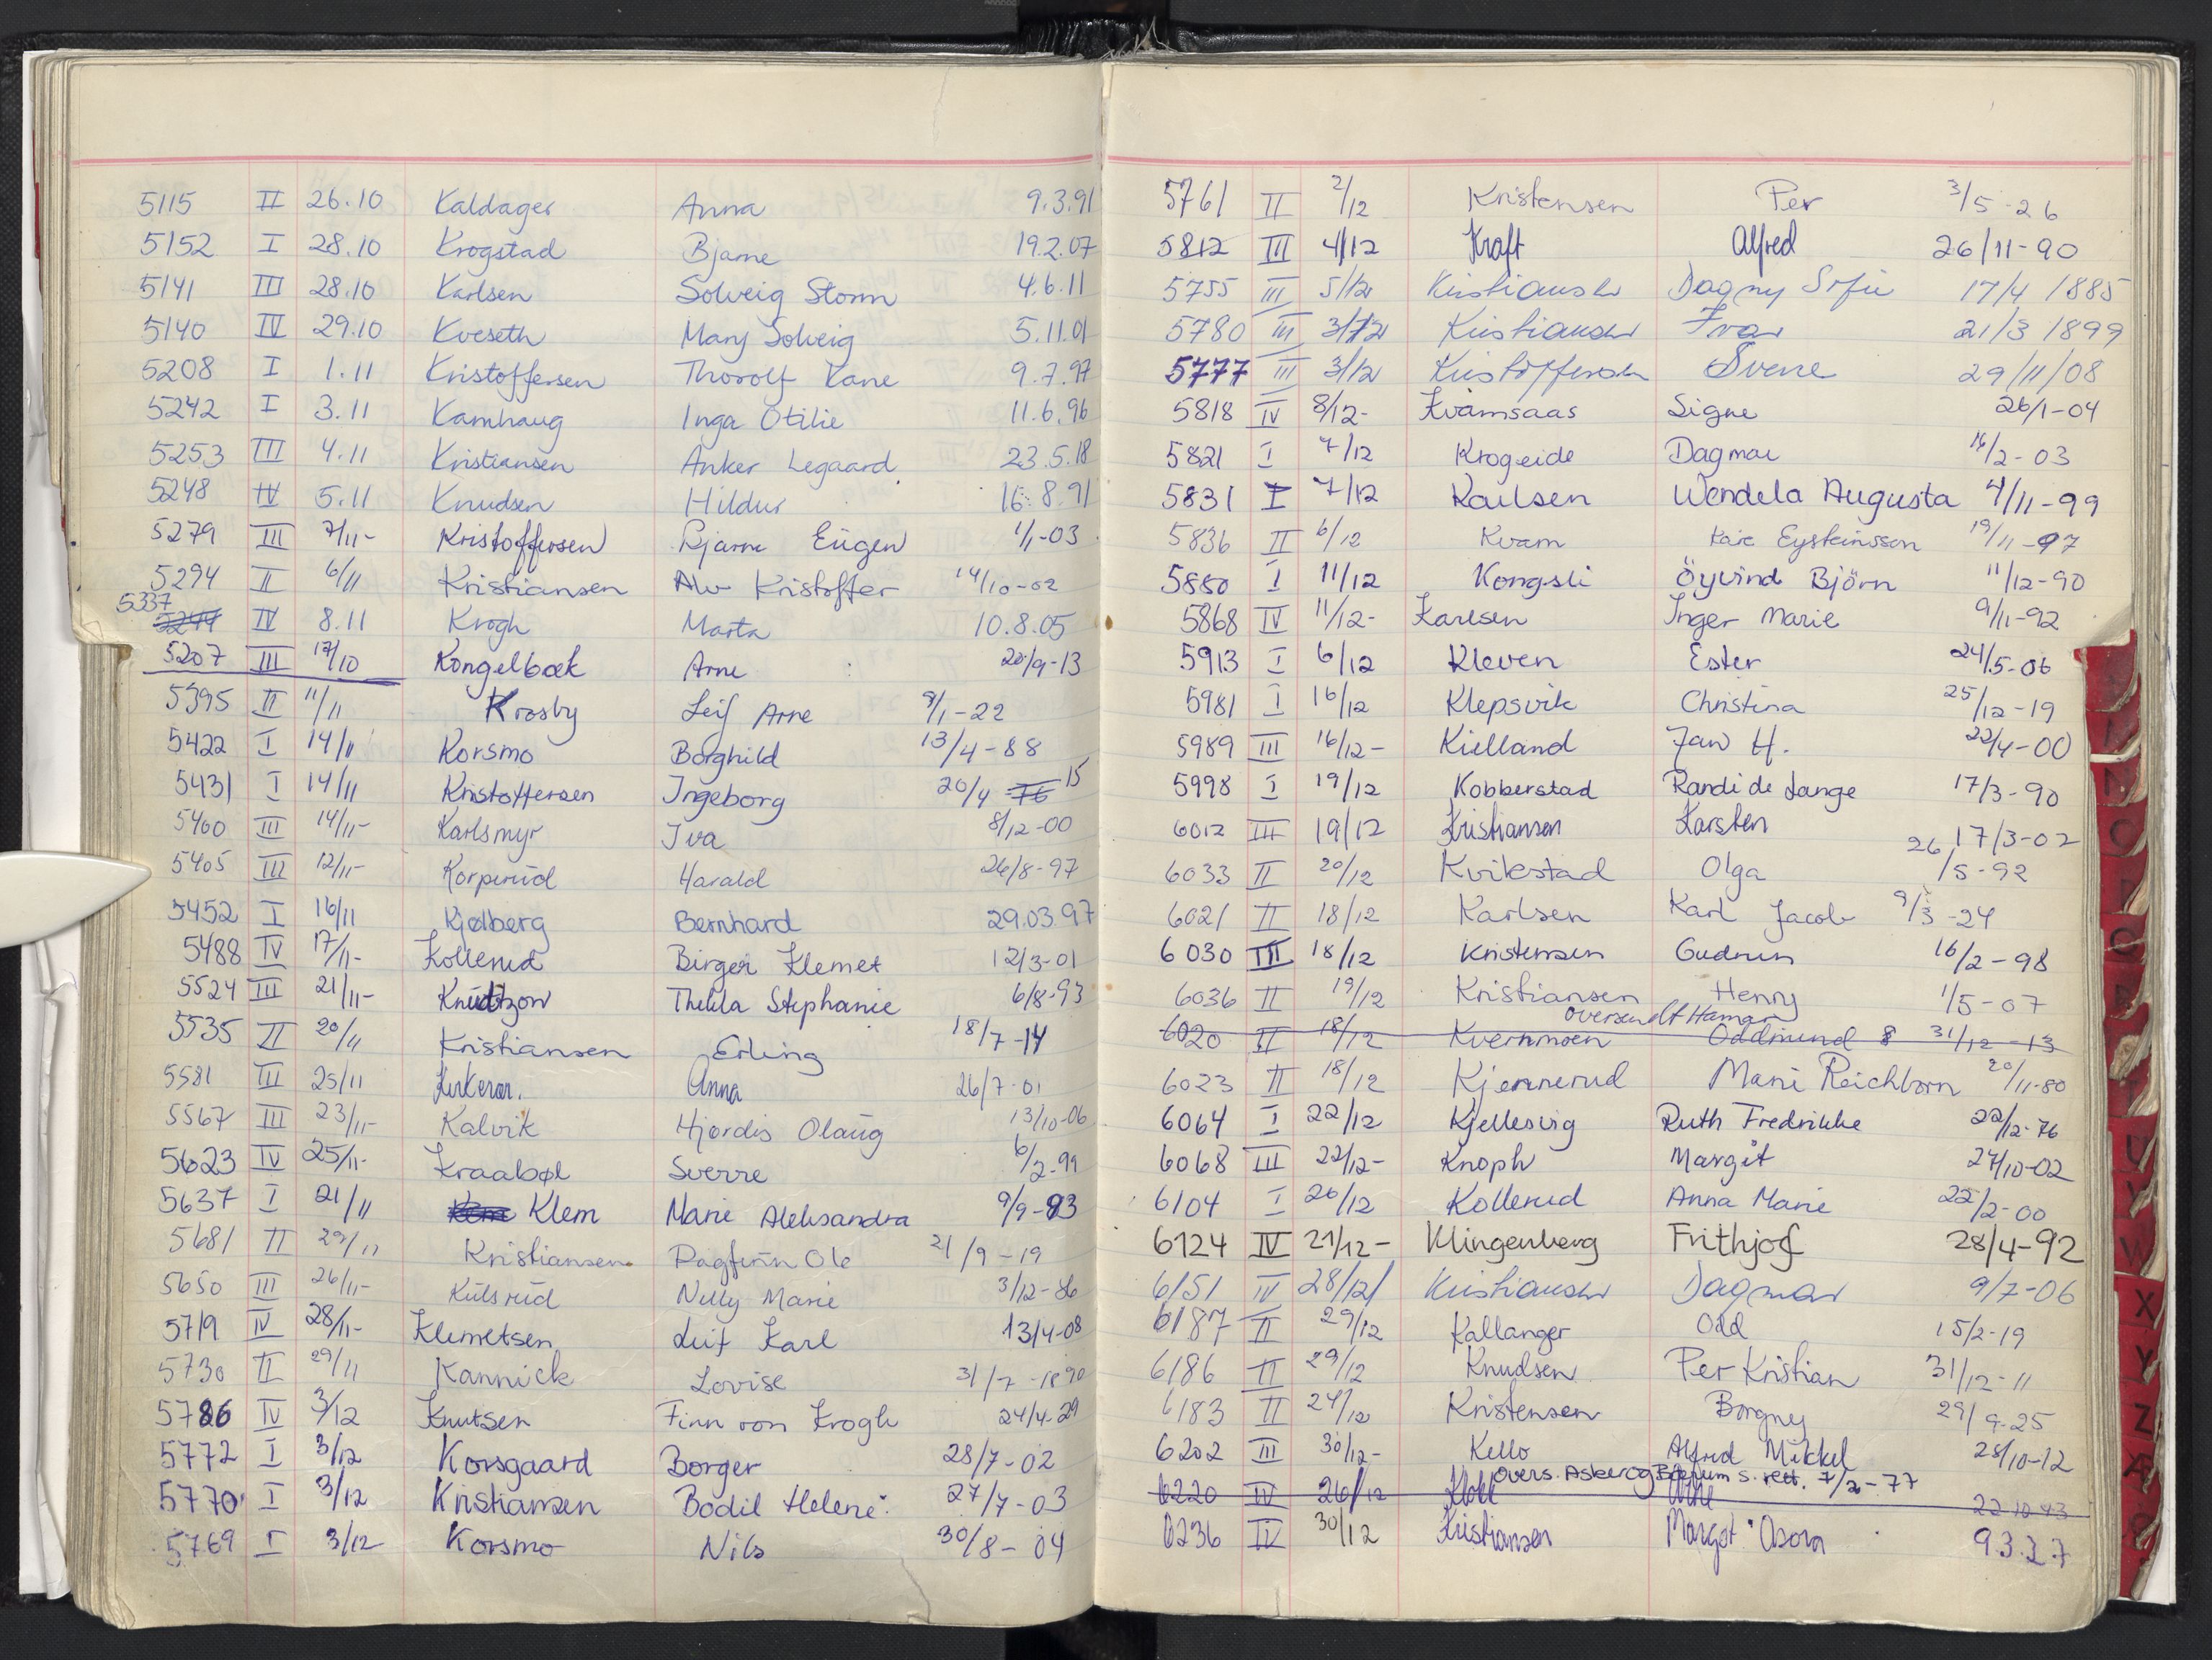 5115 II 26.10 Kaldager Anna 9.3.91
5152 I 28.10 Krogstad Bjarne 19.2.07
5141 III 28.10 Karlsen Solveig Storm 4.6.11
5140 IV 29.10 Kveseth Mary Solveig 5.11.01
5208 I 1.11 Kristoffersen Thorolf Kane 9.7.97
5242 I 3.11 Kamhaug Inga Otilie 11.6.96
5253 III 4.11 Kristiansen Anker Legaard 23.5.18
5248 IV 5.11 Knudsen Hildur 16.8.91
5279 III 7/11- Kristoffersen Bjarne Eugen 1/1-03
5294 II 6/11 Kristiansen Alv Kristoffer 14/10-02
5337
IV 8.11 Krogh Marta 10.8.05
5207 III 17/10 Kongelbæk Arne 20/9-13
5395 II 11/11 Krosby Leif Arne 9/1-22
5422 I 14/11 Korsmo Borghild 13/4-88
5431 I 14/11 Kristoffersen Ingeborg 20/4 76 15
5460 III 14/11- Karlsmyr Iva 8/12-00
5405 III 12/11- Korperud Harald 26/8-97
5452 I 16/11 Kjølberg Bernhard 29.03.97
5488 IV 17/11- Kollerud Birger Klemet 12/3-01
5524 III 21/11- Knudtzon Thekla Stephanie 6/8-93
5535 II 20/11 Kristiansen Erling 18/7-14
5581 III 25/11 Anna 26/7-01
5567 III 23/11- Kalvik Hjørdis Olaug 13/10-06
5623 IV 25/11- Kraabøl Sverre 6/2-99
5637 I 21/11 Klem Marie Aleksandra 9/9-93
5681 II 29/11 Kristiansen Dagfinn Ole 21/9-19
5650 III 26/11- Kulsrud Nelly Marie 3/12-86
5719 IV 28/11- Klemetsen Leif Karl 13/4-08
5730 II 29/11 Kannick Lovise 31/7-1890
5786 IV 3/12 Knutsen Finn von Krogh 24/4-29
5772 I 3/12 Korsgaard Borger 28/7-02
5770 I 3/12 Kristiansen Bodil Helene 27/7-03
5769 I 3/12 Korsmo Nils 30/8-04
5761 II 2/12 Kristensen Per 3/5-26
5812 III 4/12 Kraft Alfred 26/11-90
5755 III 5/12 Kristiansen Dagny Sofie 17/4 1885
5780 III 3/12 Kristiansen Ivar 21/3 1899
5777 III 3/12 Kristoffersen Sverre 29/11/08
5818 IV 8/12- Kvamsaas Signe 26/1-04
5821 I 7/12 Krogeide Dagmar 16/2-03
5831 I 7/12 Karlsen Wendela Augusta 4/11-99
5836 II 6/12 Kvam Kåre Eysteinsson 19/11-97
5850 I 11/12 Kongsli Öyvind Björn 11/12-90
5868 IV 11/12- Karlsen Inger Marie 9/11-92
5913 I 6/12 Kleven Ester 24/5-06
5981 I 16/12 Klepsvik Christina 25/12-19
5989 III 16/12- Kielland Jan H. 22/4-00
5998 I 19/12 Kobberstad Randi de Lange 17/3-90
6012 III 19/12 Kristiansen Karsten 17/3-02
6033 II 20/12 Kvikstad Olga 26/5-92
6021 II 18/12 Karlsen Karl Jacob 9/3-24
6030 III 18/12 Kristensen Gudrun 16/2-98
6036 II 19/12 Kristiansen Henny 1/5-07
oversendt Hamar
6020 II 18/12 Kvernmoen Oddmund 8 31/12-13
6023 II 18/12 Kjennerud Marie Reichborn 20/11-80
6064 I 22/12 Kjellesvig Ruth Fredrikke 22/12-76
6068 III 22/12- Knoph Margit 27/10-02
6104 I 26/12 Kollerud Anna Marie 22/2-00
6124 IV 21/12- Klingenberg Frithjof 28/4-92
6151 IV 28/12 Kristiansen Dagmar 9/7-06
6187 II 29/12 Kallanger Odd 15/2-19
6186 II 29/12 Knudsen Per Kristian 31/12-11
6183 II 27/12 Kristensen Borgny 29/9-25
6202 III 30/12- Kello Alfred Mikkel 28/10-12
overs. Asker og Bærum s. rett. 7/2-77
6220 IV 26/12 22.10.43
6236 IV 30/12 Kristiansen Margot Asora 9.3.27
U
V
W
X
Y
Z
Æ